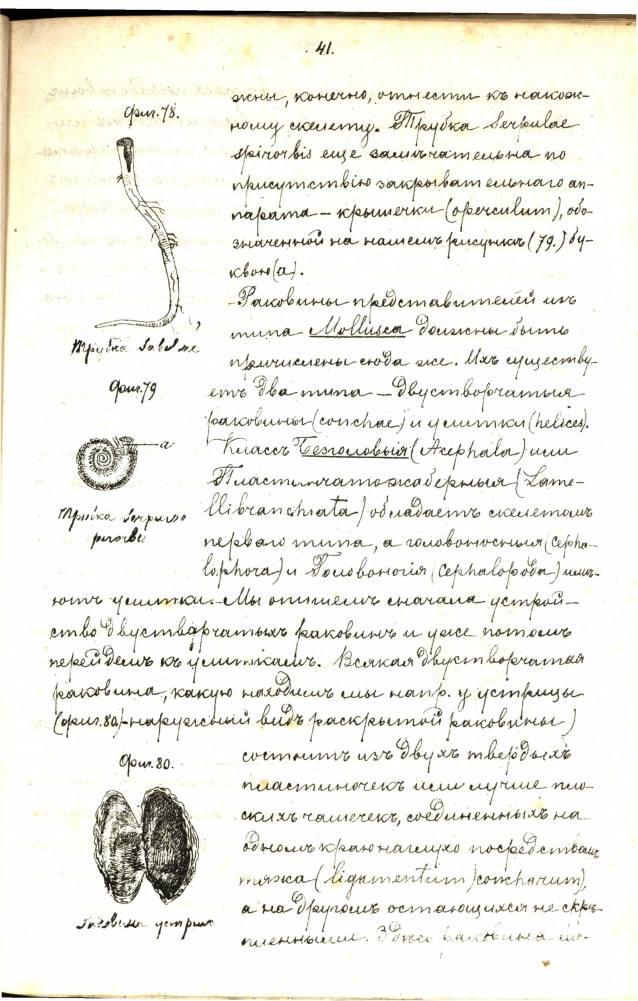 41.
жны, конечно, отнести къ накож-
ному скелету. Трубка Serpulae
spirorbis еще замѣчательна по
присутствію закрывательнаго ап-
парата – крышечки (operculum), обо-
значенной на нашемъ рисункѣ (79.) бу-
квою (a).
Раковины представителей изъ
типа Mollusca должны быть
причислены сюда же. Ихъ существу-
етъ два типа – двустворчатыя
раковины (conchae) и улитки (helices).
Классъ Безголовыя (Acephala) или
Пластинчатожаберныя (Lame-
llibranchiata) обладаетъ скелетомъ
перваго типа, а головоносныя (Cepha-
lophora) и Головоногія (Cephalopoda) имѣ-
ютъ улитки. Мы опишемъ сначала устрой-
ство двустворчатыхъ раковинъ и уже потомъ
перейдемъ къ улиткамъ. Всякая двустворчатая
раковина, какую находимъ мы напр. у устрицы
(фиг. 80, – наружный видъ раскрытой раковины)
состоитъ изъ двухъ твердыхъ
пластиночекъ или лучше пло-
скихъ чашечекъ, соединенныхъ на
одномъ краю наглухо посредствомъ
тяжа (ligamentum concharum),
а на другомъ остающихся не скрѣ-
пленными. Здѣсь раковина мо-
Фиг. 78.
Трубка
Фиг. 79
a
Трубка
Фиг. 80.
Раковина устриц